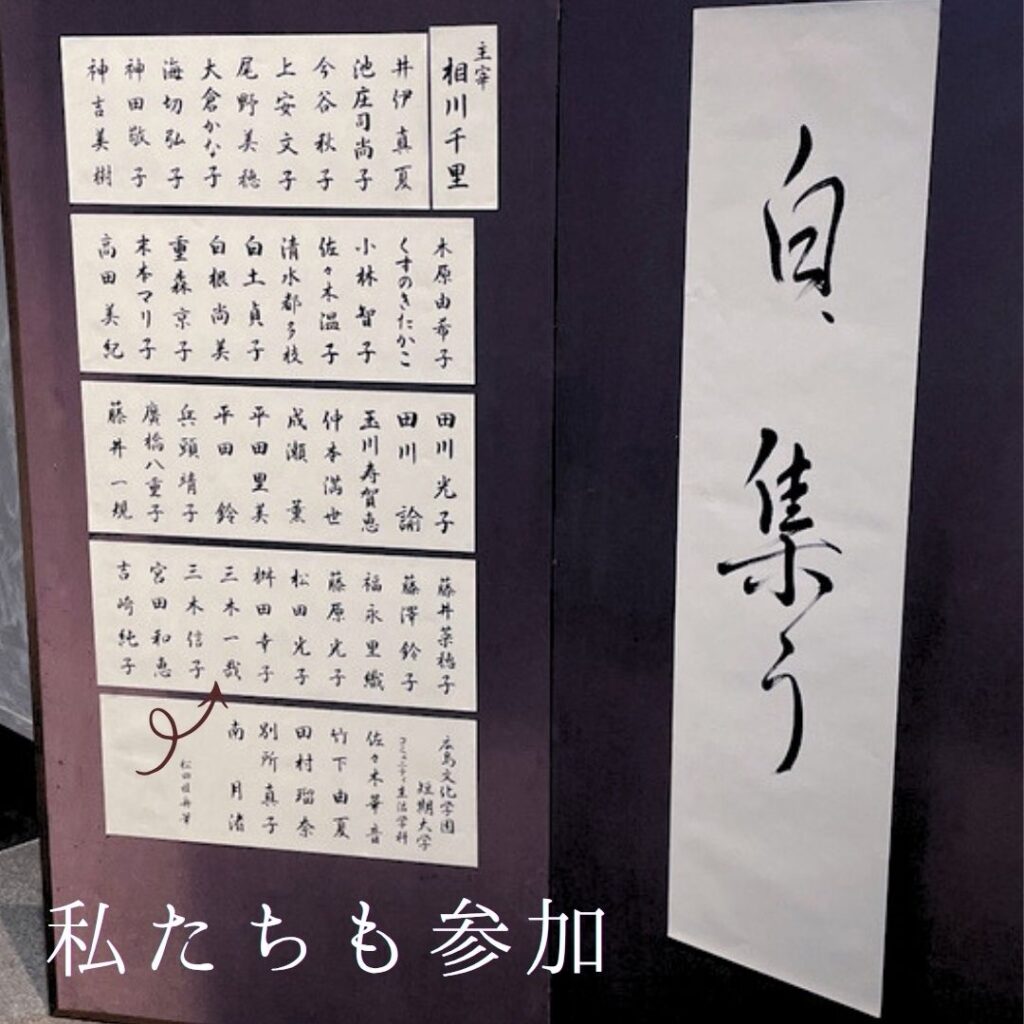 白、集う
主宰
相川千里
井伊真夏
池庄司尚子
今谷秋子
上安文子
尾野美穂
大倉かな子
海切弘子
神田敬子
神吉美樹
木原由希子
くすのきたかこ
小林智子
佐々木温子
清水都多枝
白土貞子
白根尚美
重森京子
末本マリ子
高田美紀
田川光子
田川諭
玉川寿賀恵
仲本満世
成瀬薫
平田里美
平田鈴
兵頭靖子
廣橋八重子
藤井一規
藤井菜穂子
藤澤鈴子
福永里織
藤原光子
松田光子
桝田幸子
三木一哉
三木信子
宮田和恵
吉崎純子
広島文化学園
短期大学
コミュニティ生活学科
佐々木華音
竹下由夏
田村瑠奈
別所真子
南月渚
私たちも参加